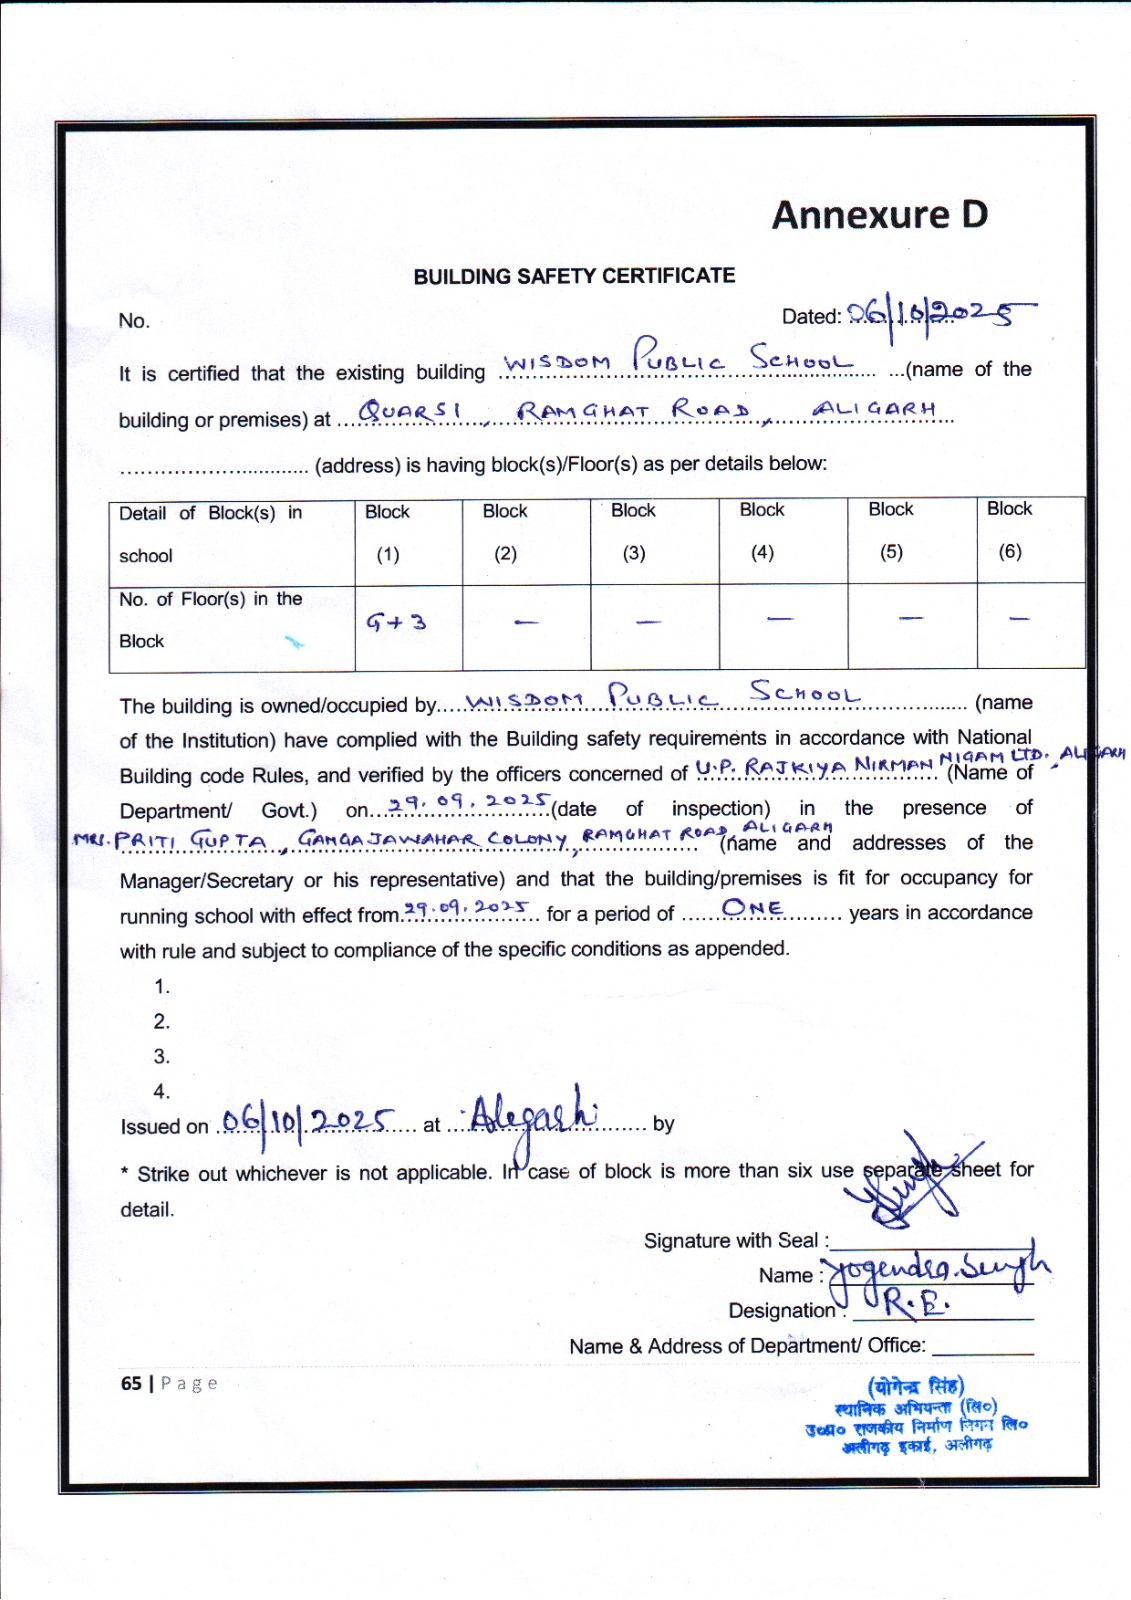 Annexure D
BUILDING SAFETY CERTIFICATE
No. Dated: 06/10/2025
It is certified that the existing building WISDOM PUBLIC SCHOOL (name of the
building or premises) at QUARSI, RAMGHAT ROAD, ALIGARH
(address) is having block(s)/Floor(s) as per details below:
Detail of Block(s) in school Block (1) Block (2) Block (3) Block (4) Block (5) Block (6)
No. of Floor(s) in the Block G+3 — — — — —
The building is owned/occupied by WISDOM PUBLIC SCHOOL (name
of the Institution) have complied with the Building safety requirements in accordance with National
Building code Rules, and verified by the officers concerned of U.P. RAJKIYA NIRMAN NIGAM LTD., ALIGARH (Name of
Department/ Govt.) on 29.09.2025 (date of inspection) in the presence of
MRS. PRITI GUPTA, GANGAJAWAHAR COLONY, RAMGHAT ROAD, ALIGARH (name and addresses of the
Manager/Secretary or his representative) and that the building/premises is fit for occupancy for
running school with effect from 29.09.2025 for a period of ONE years in accordance
with rule and subject to compliance of the specific conditions as appended.
1.
2.
3.
4.
Issued on 06/10/2025 at Aligarh by
* Strike out whichever is not applicable. In case of block is more than six use separate sheet for
detail.
Signature with Seal :
Name : Yogendra Singh
Designation : R.E.
Name & Address of Department/ Office:
65 | Page
(योगेन्द्र सिंह)
स्थानिक अभियन्ता (सि०)
उ०प्र० राजकीय निर्माण निगम लि०
अलीगढ़ इकाई, अलीगढ़